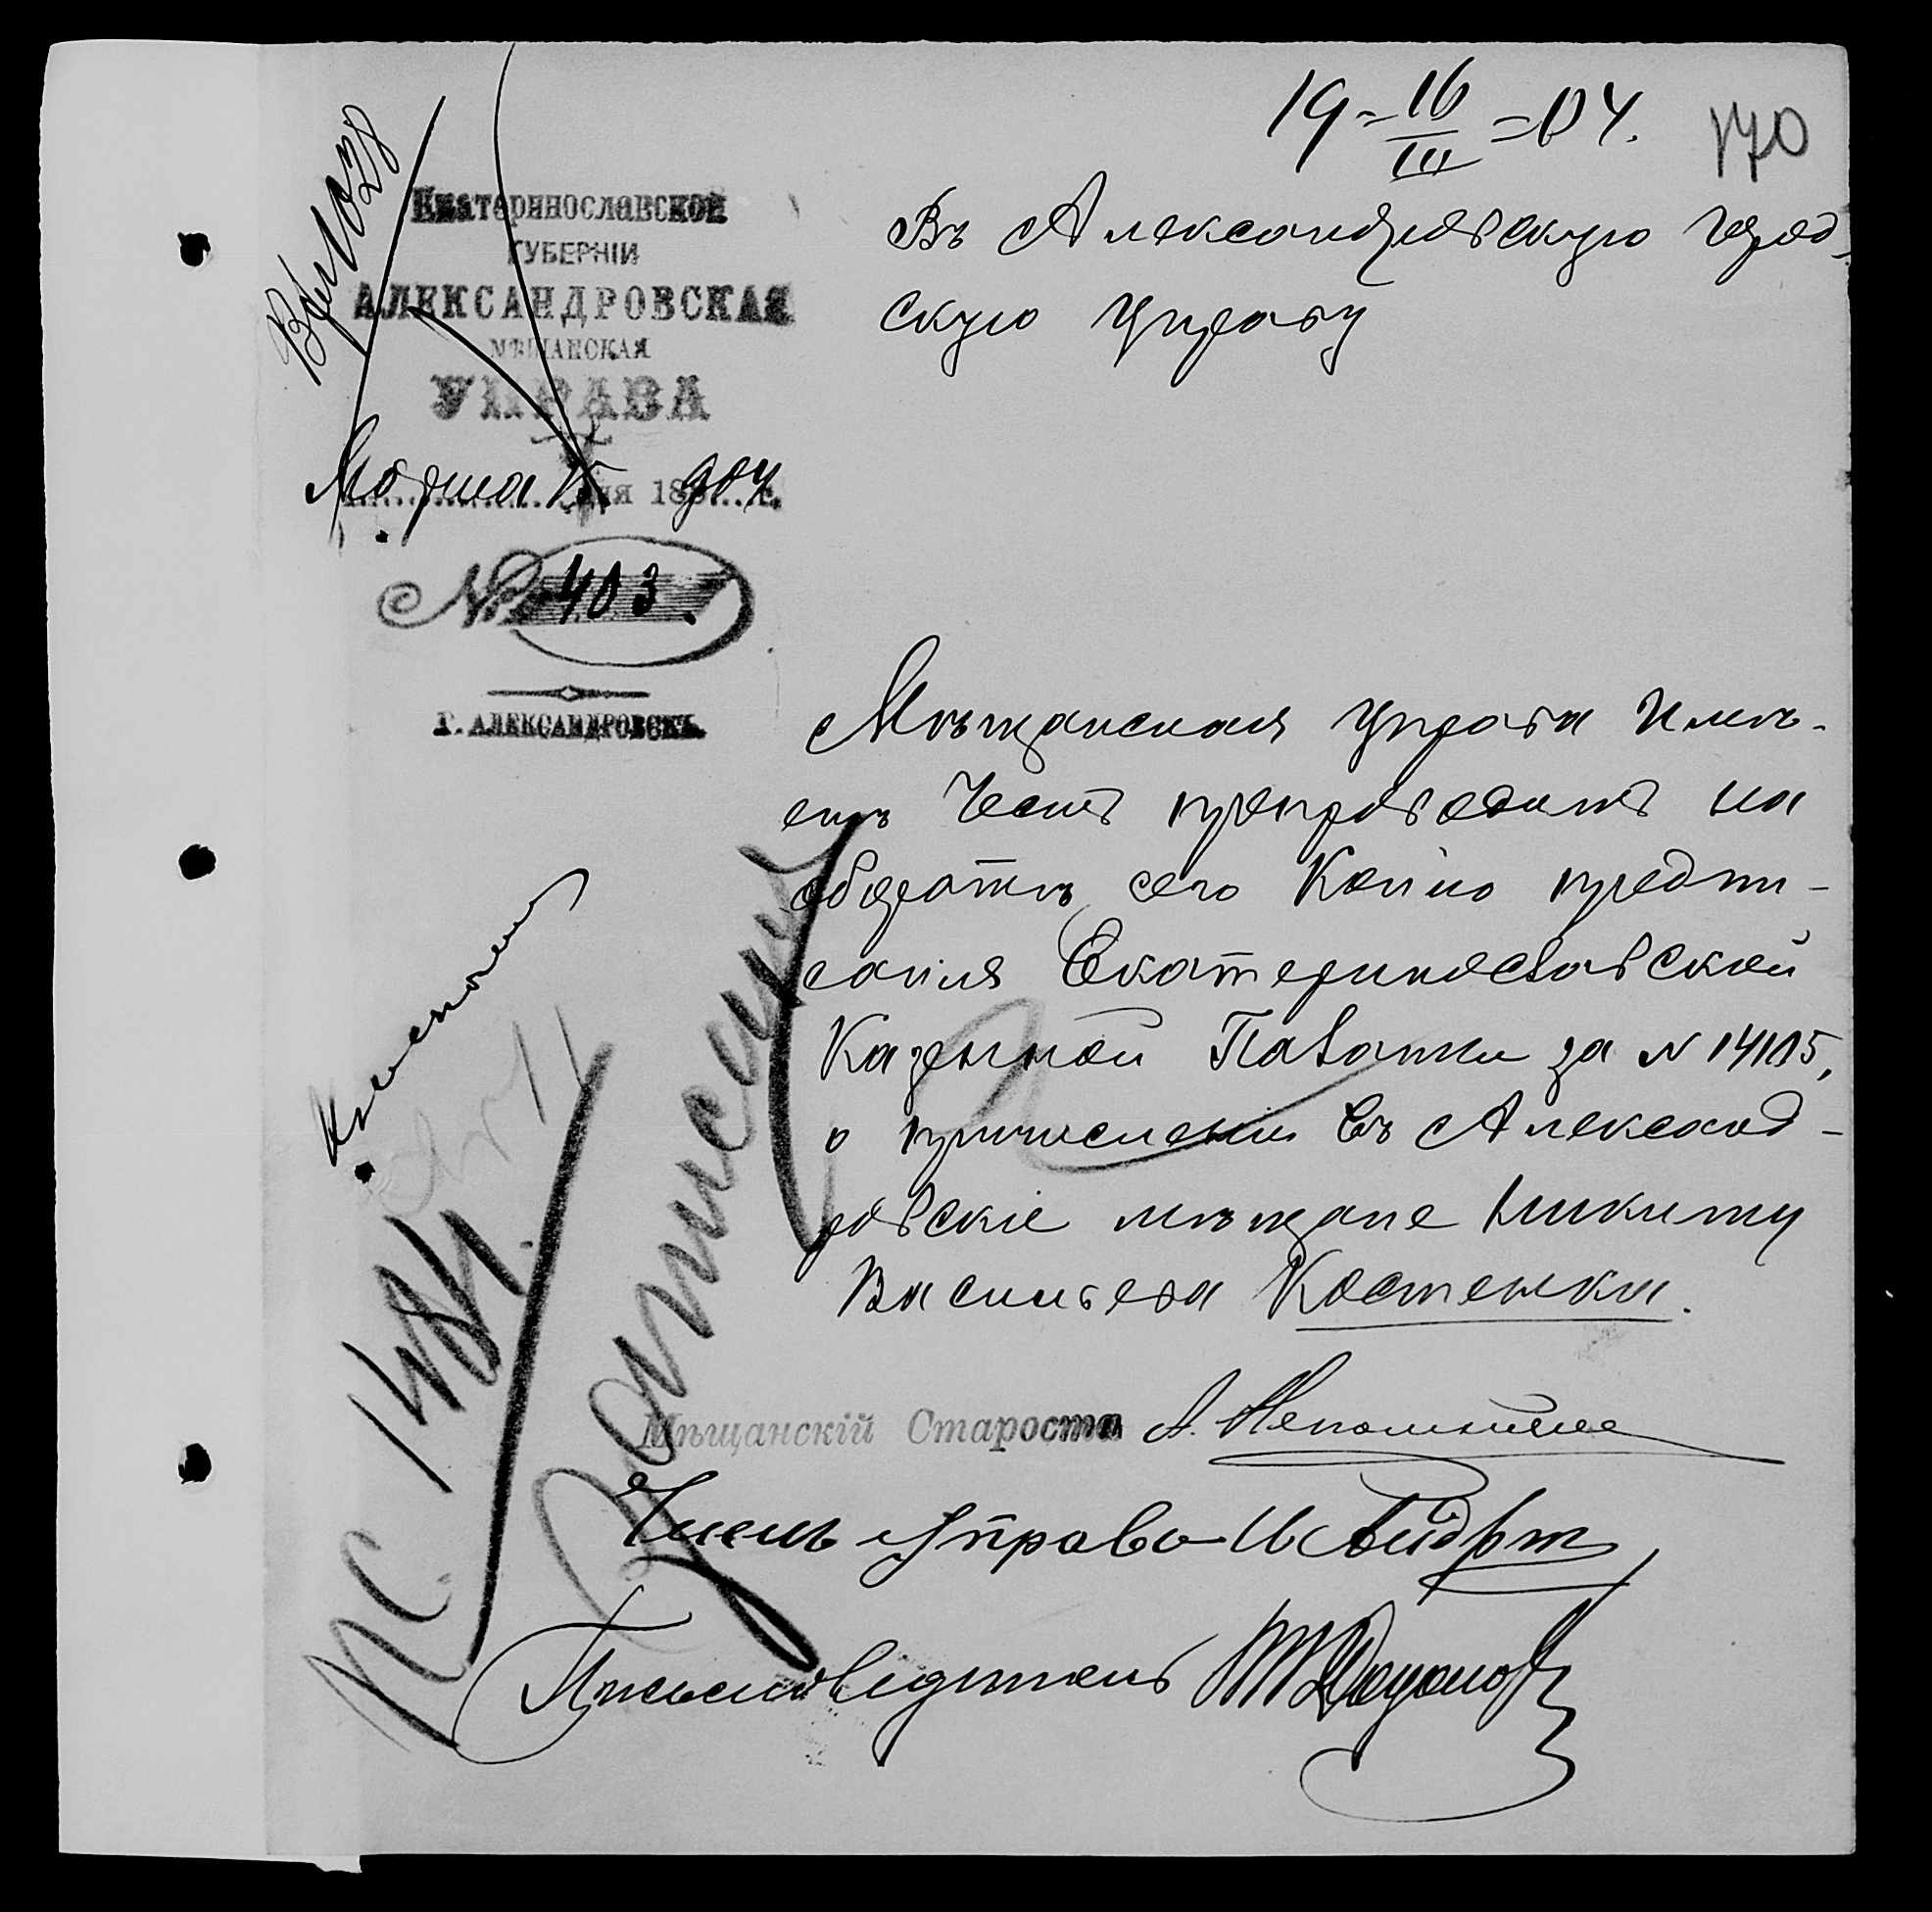 19 16/III 04.
170
Вх 1028
Екатеринославской
ГУБЕРНІИ
АЛЕКСАНДРОВСКАЯ
МѢЩАНСКАЯ
УПРАВА
Марта 15 дня 1904 г.
№ 403.
Г. АЛЕКСАНДРОВСКЪ.
Въ Александровскую город-
скую Управу
Мѣщанская Управа имѣ-
етъ честь препроводить на
оборотѣ сего копію предпи-
санія Екатеринославской
Казенной Палатки за N 14105,
о причисленіи въ Александ-
ровскіе мѣщане Никиту
Васильева Костенка.
Записка
Мѣщанскій Староста А. Непомнящее
Членъ Управы
Письмоводитель